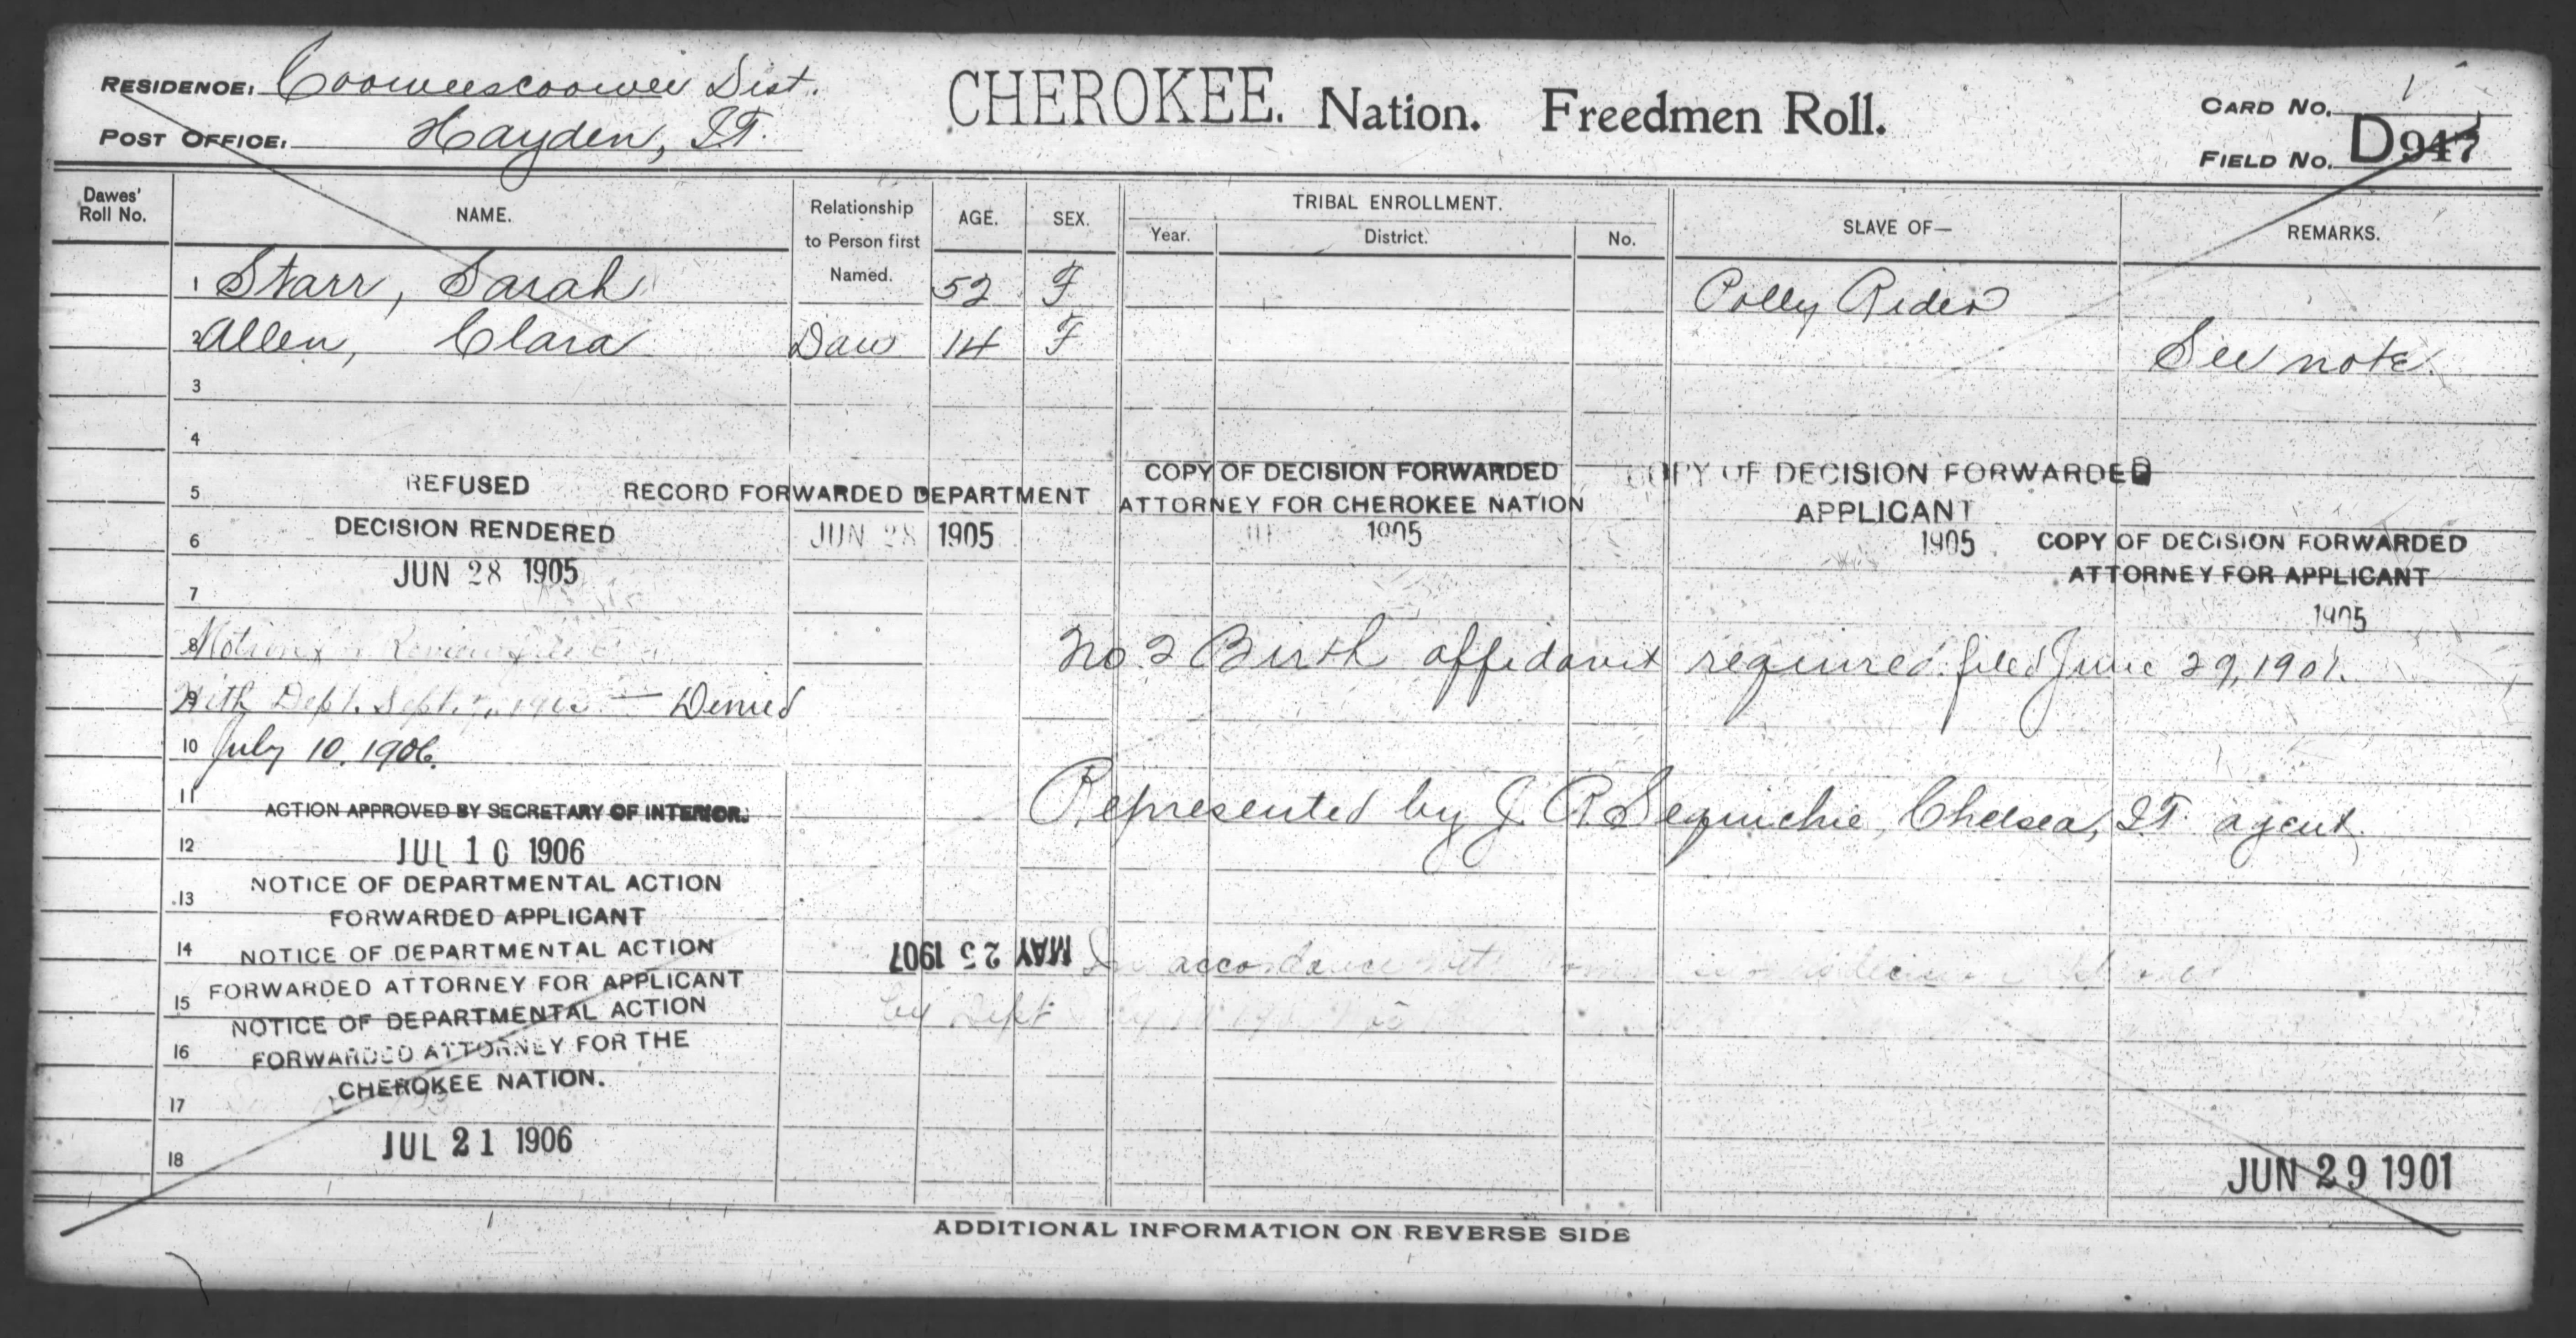 RESIDENCE: Cooweescoowee Dist.
POST OFFICE: Hayden, I.T.
CHEROKEE. Nation. Freedmen Roll.
CARD NO.
FIELD NO. D947
Dawes' Roll No.
NAME.
Relationship to Person first Named.
AGE.
SEX.
TRIBAL ENROLLMENT.
Year.
District.
No.
SLAVE OF—
REMARKS.
1 Starr, Sarah 52 F Polly Rider
2 Allen, Clara Dau 14 F See note.
3
4
5 REFUSED
RECORD FORWARDED DEPARTMENT
COPY OF DECISION FORWARDED
ATTORNEY FOR CHEROKEE NATION
COPY OF DECISION FORWARDED
APPLICANT
6 DECISION RENDERED
JUN 28 1905
1905
1905
COPY OF DECISION FORWARDED
ATTORNEY FOR APPLICANT
1905
JUN 28 1905
7
8 Motion Review
No 2 Birth affidavit required. filed June 29, 1901.
9 With Dept. Sept. — Denied
10 July 10. 1906.
11
Represented by J. R. Sequichie, Chelsea, I.T. agent.
ACTION APPROVED BY SECRETARY OF INTERIOR.
12 JUL 10 1906
NOTICE OF DEPARTMENTAL ACTION
13
FORWARDED APPLICANT
14 NOTICE OF DEPARTMENTAL ACTION
MAY 25 1907
In accordance with
FORWARDED ATTORNEY FOR APPLICANT
15
by Dept
NOTICE OF DEPARTMENTAL ACTION
16 FORWARDED ATTORNEY FOR THE
CHEROKEE NATION.
17
JUL 21 1906
18
JUN 29 1901
ADDITIONAL INFORMATION ON REVERSE SIDE